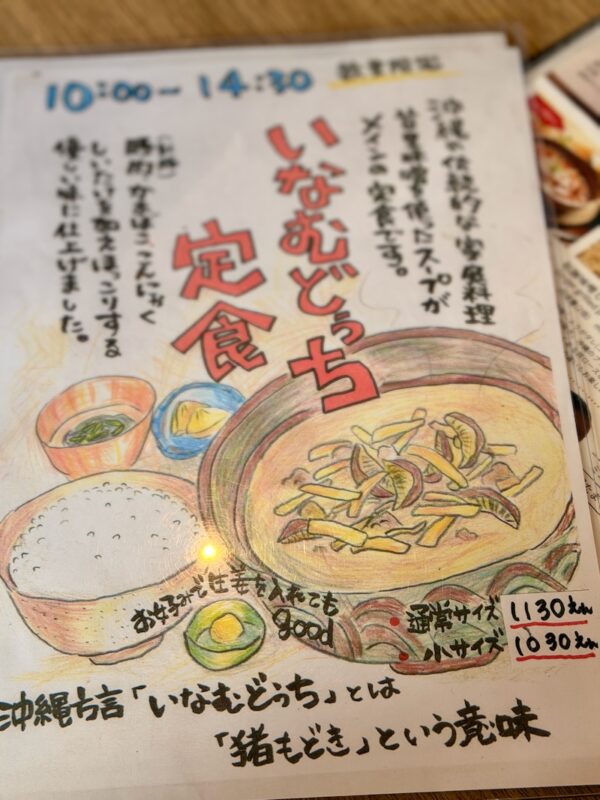 10:00〜14:30 数量限定
沖縄の伝統的な家庭料理
甘里味噌を使たスープが
メインの定食です。
いなむどぅち
定食
(お肉)
豚肉、かまぼこ、こんにゃく
しいたけを加えほっこりする
優しい味に仕上げました。
お好みで生姜を入れても
good
・通常サイズ 1130えん
・小サイズ 1030えん
沖縄方言「いなむどぅち」とは
「猪もどき」という意味